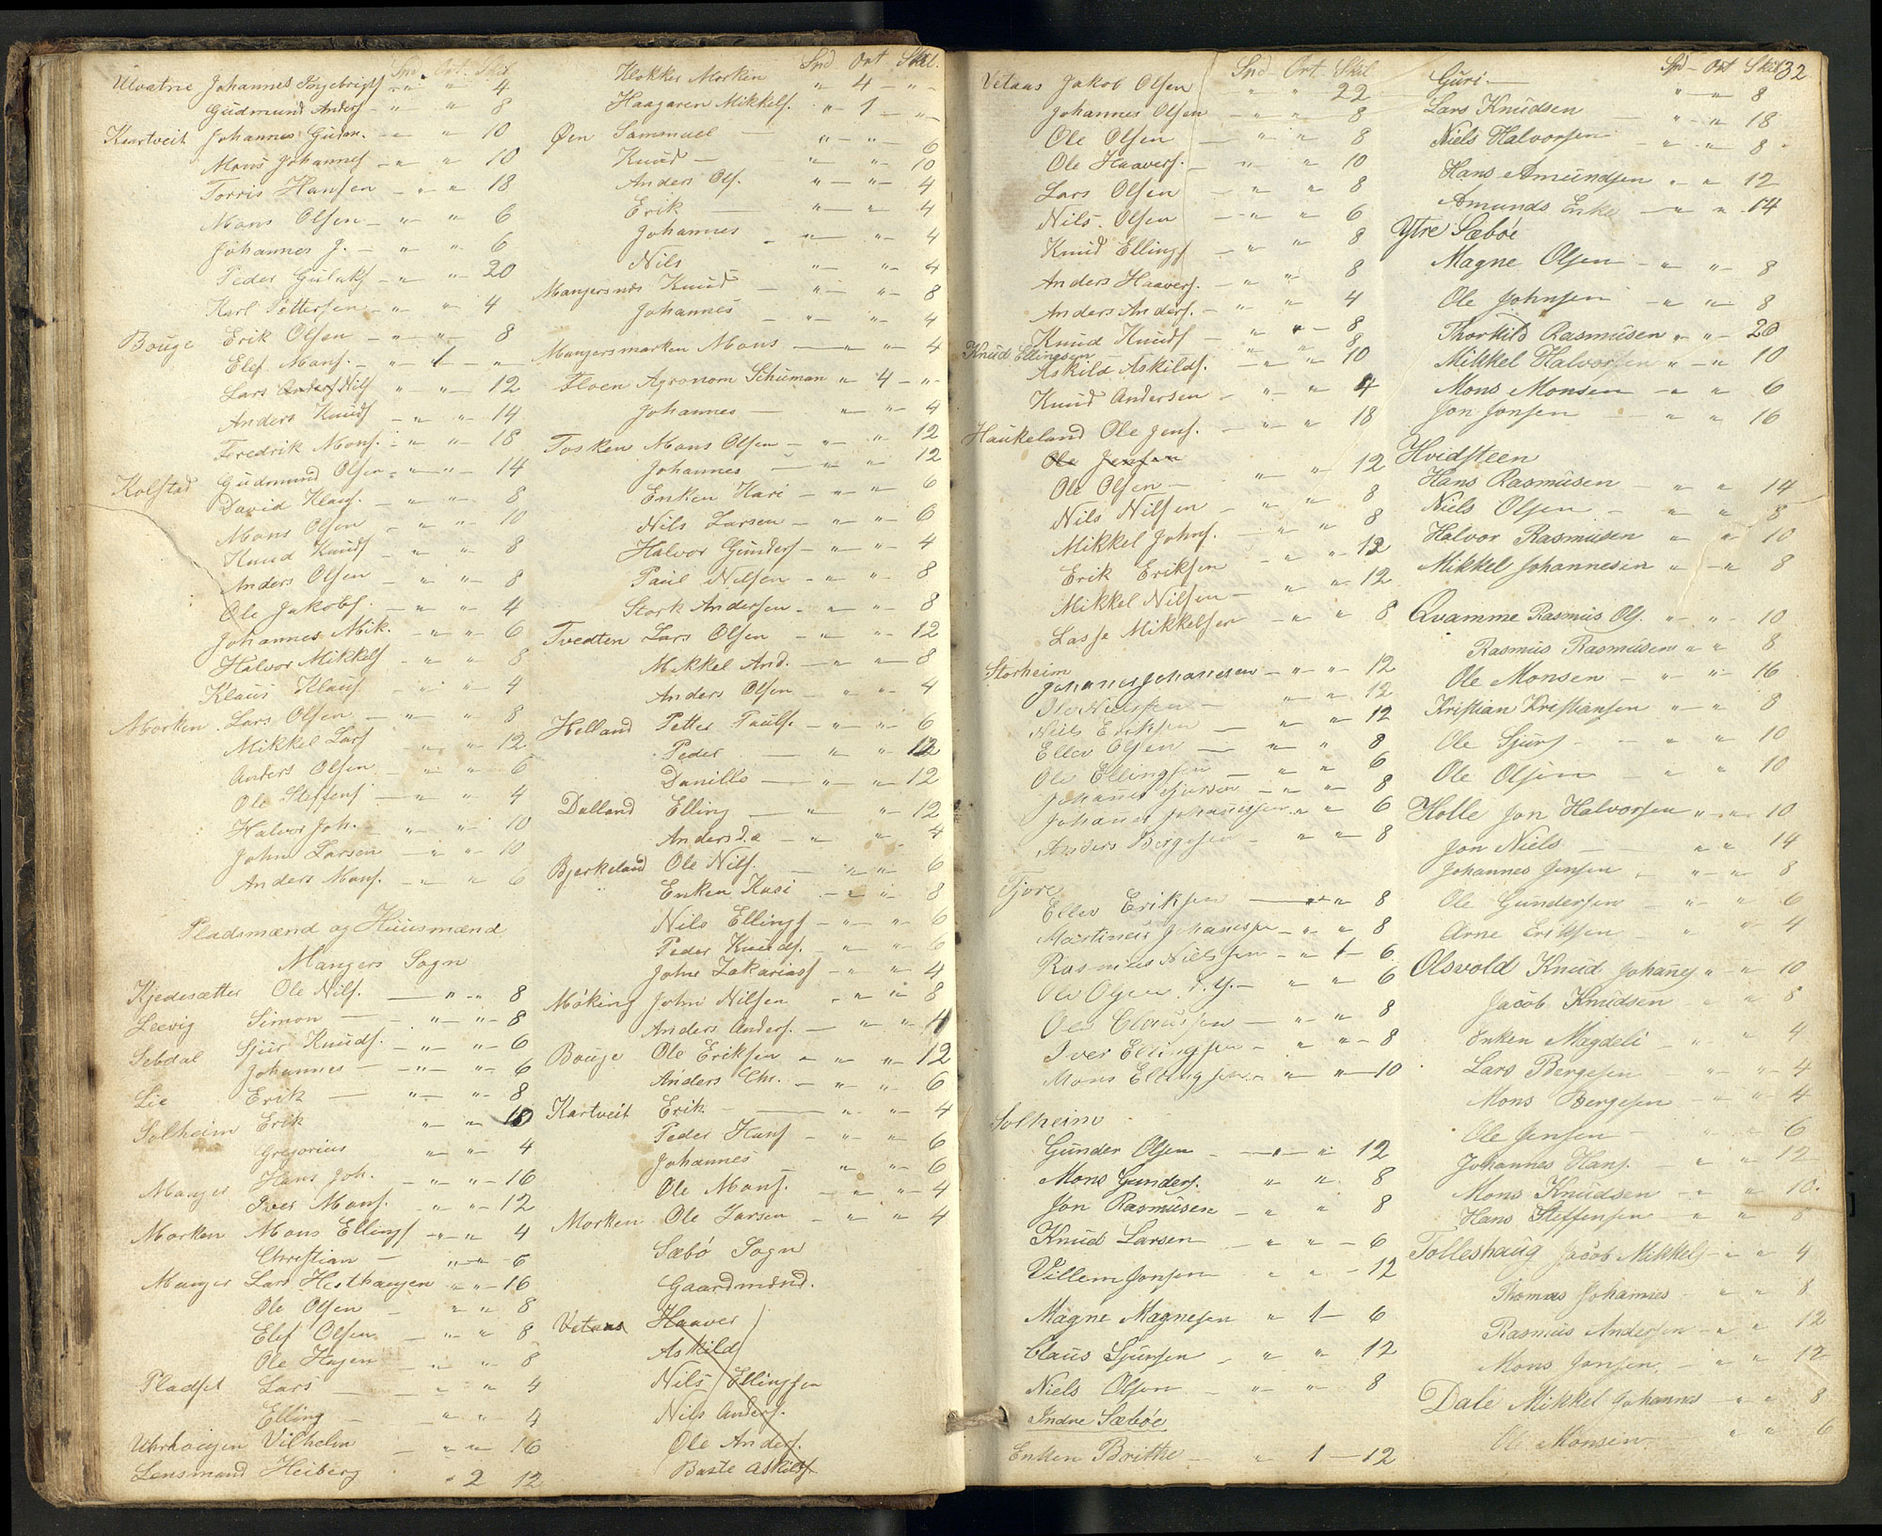 Spd. Ort. Skil.
Johannes Ingebrigts - " " 4
Gudmund Anders - " " 8
Kartveit Johannes Gudm. - " " 10
Mons Johannes - " " 10
Torris Hansen - " " 18
Mons Olsen - " " 6
Johannes J. - " " 6
Peder - " " 20
Karl Pettersen - " " 4
Bouge Erik Olsen - " " 8
Elef Mons. - " 1 - "
Lars Nils " " 12
Anders Knuds - " " 14
Fredrik Mons. - " " 18
Kolstad Gudmund Olsen - " " 14
David Klaus. - " " 8
Mons Olsen - " " 10
Knud Knuds - " " 8
Anders Olsen - " " 8
Ole Jakobs. - " " 4
Johannes Mik. - " " 6
Halvor Mikkels - " " 8
Klaus Klaus - " " 4
Morken Lars Olsen - " " 8
Mikkel Lars - " " 12
Anders Olsen - " " 6
Ole Steffens - " " 4
Halvor Joh. - " " 10
John Larsen - " " 10
Anders Mons. - " " 6
Pladsmænd og Huusmænd
Mangers Sogn
Kjedesætter Ole Nils. - " " 8
Leevig Simon - " " 8
Sebdal Sjur Knuds. - " " 6
Johannes - " " 6
Lie Erik - " " 8
Solheim Erik " " 10
Gregorius " " 4
Manger Hans Joh. - " " 16
Iver Mons. - " " 12
Morken Mons Ellings - " " 4
Christian - " " 6
Manger Lars " " 16
Ole Olsen - " " 8
Elef Olsen - " " 8
Ole Hagen - " " 8
Pladset Lars - " " 4
Elling - " " 4
Vilhelm - " " 16
Lensmand Heiberg " 2 12
Spd Ort Skil.
Klokker Morken " 4 - "
Haagaren Mikkels. " 1 - "
Øen Sammuel - " " 6
Knud - " " 10
Anders Ols. " " 4
Erik - " " 4
Johannes - " " 4
Nils - " " 4
Mangersnes Knud - " " 8
Johannes - " " 4
Mangersmarken Mons - " " 4
Floen Agronom Schuman " 4 - "
Johannes - " " 4
Tosken Mons Olsen - " " 12
Johannes - " " 12
Enken Kari - " " 6
Nils Larsen - " " 6
Halvor Gunders - " " 4
Paul Nilsen - " " 8
Stork Andersen - " " 8
Tvedten Lars Olsen - " " 12
Mikkel And. - " " 8
Anders Olsen - " " 4
Helland Petter Pauls. - " " 6
Peder - " " 12
Danille - " " 12
Dalland Elling - " " 12
Anders - " " 4
Bjerkeland Ole Nils. - " " 6
Enken Kari - " " 8
Nils Ellings - " " 6
Peder Knuds. - " " 6
John Zakarias - " " 4
Møking John Nilsen - " " 8
Anders Anders. - " " 4
Bouge Ole Eriksen - " " 12
Anders Chr. - " " 6
Kartveit Erik - " " 4
Peder Hans - " " 6
Johannes - " " 6
Ole Mons. - " " 4
Morken Ole Larsen - " " 4
Sæbø Sogn
Gaardmænd.
Vetaas Haaver
Askild
Nils Ellingsen
Nils Anders.
Ole Anders.
Askilds
Spd Ort. Skil
Vetaas Jakob Olsen " " 22
Johannes Olsen - " " 8
Ole Olsen - " " 8
Ole Haavers. - " " 10
Lars Olsen - " " 8
Nils Olsen - " " 6
Knud Ellings - " " 8
Anders Haavers. - " " 8
Anders Anders. - " " 4
Knud Knuds - " " 8
Knud Ellingsen - " " 8
Askild Askilds. - " " 10
Knud Andersen - " " 4
Haukeland Ole Jens. - " " 18
Ole Jensen
Ole Olsen - " " 12
Nils Nilsen " " 8
Mikkel Johns. - " " 8
Erik Eriksen - " " 12
Mikkel Nilsen - " " 12
Lasse Mikkelsen - " " 8
Storheim
Johanes Johanesen - " " 12
Ole Nielssen - " " 12
Niels Eriksen - " " 12
Ellev Olsen - " " 8
Ole Ellingsen - " " 6
Johanes - " " 8
Johanes Johanessen " " 6
Anders Børgesen - " " 8
Fjore
Ellev Eriksen - " " 8
Martines Johanesen - " " 8
Rasmus Nielssen - " 1 - 6
Ole Olsen - " " 6
Ole Claussen - " " 8
Iver Ellingsen - " " 8
Mons Ellingsen - " " 10
Solheim
Gunder Olsen - " " 12
Mons Gunders. " " 8
Jon Rasmusen - " " 8
Knud Larsen - " " 6
Villem Jonsen " " 12
Magne Magnesen " 1 - 6
Claus Sjursen - " " 12
Niels Olsen - " " 8
Indre Sæbøe
Enken Brithe - " 1 - 12
Spd - Ort Skil 32
Guri - " " 8
Lars Knudsen " " 18
Niels Halvorsen - " " 8
Hans Amundsen " " 12
Amunds Enke - " " 14
Ytre Sæbøe
Magne Olsen - " " 8
Ole Johnsen - " " 8
Thorkild Rasmusen " " 20
Mikkel Halvorsen " " 10
Mons Monsen - " " 6
Jon Jonsen " " 16
Hvidsteen
Hans Rasmusen - " " 14
Niels Olsen - " " 8
Halvor Rasmusen " " 10
Mikkel Johannesen " " 8
Qvamme Rasmus Ols. " " 10
Rasmus Rasmusen " " 8
Ole Monsen - " " 16
Kristian Kristiansen " " 8
Ole Sjurs - " " 10
Ole Olsen " " 10
Holle Jon Halvorsen " " 10
Jon Niels - " " 14
Johannes Jensen " " 8
Ole Gundersen " " 6
Arne Eriksen " " 4
Olsvold Knud Johanes " " 10
Jacob Knudsen " " 8
Enken Magdeli - " " 4
Lars Børgesen - " " 4
Mons Børgesen - " " 4
Ole Jensen - " " 6
Johannes Hans. - " " 12
Mons Knudsen - " " 10
Hans Steffensen " " 8
Tolleshaug Jacob Mikkels - " " 4
Thomas Johannes - " " 8
Rasmus Andersen - " " 12
Mons Jonsen - " " 12
Dale Mikkel Johannes " " 8
Ole Monsen - " " 6